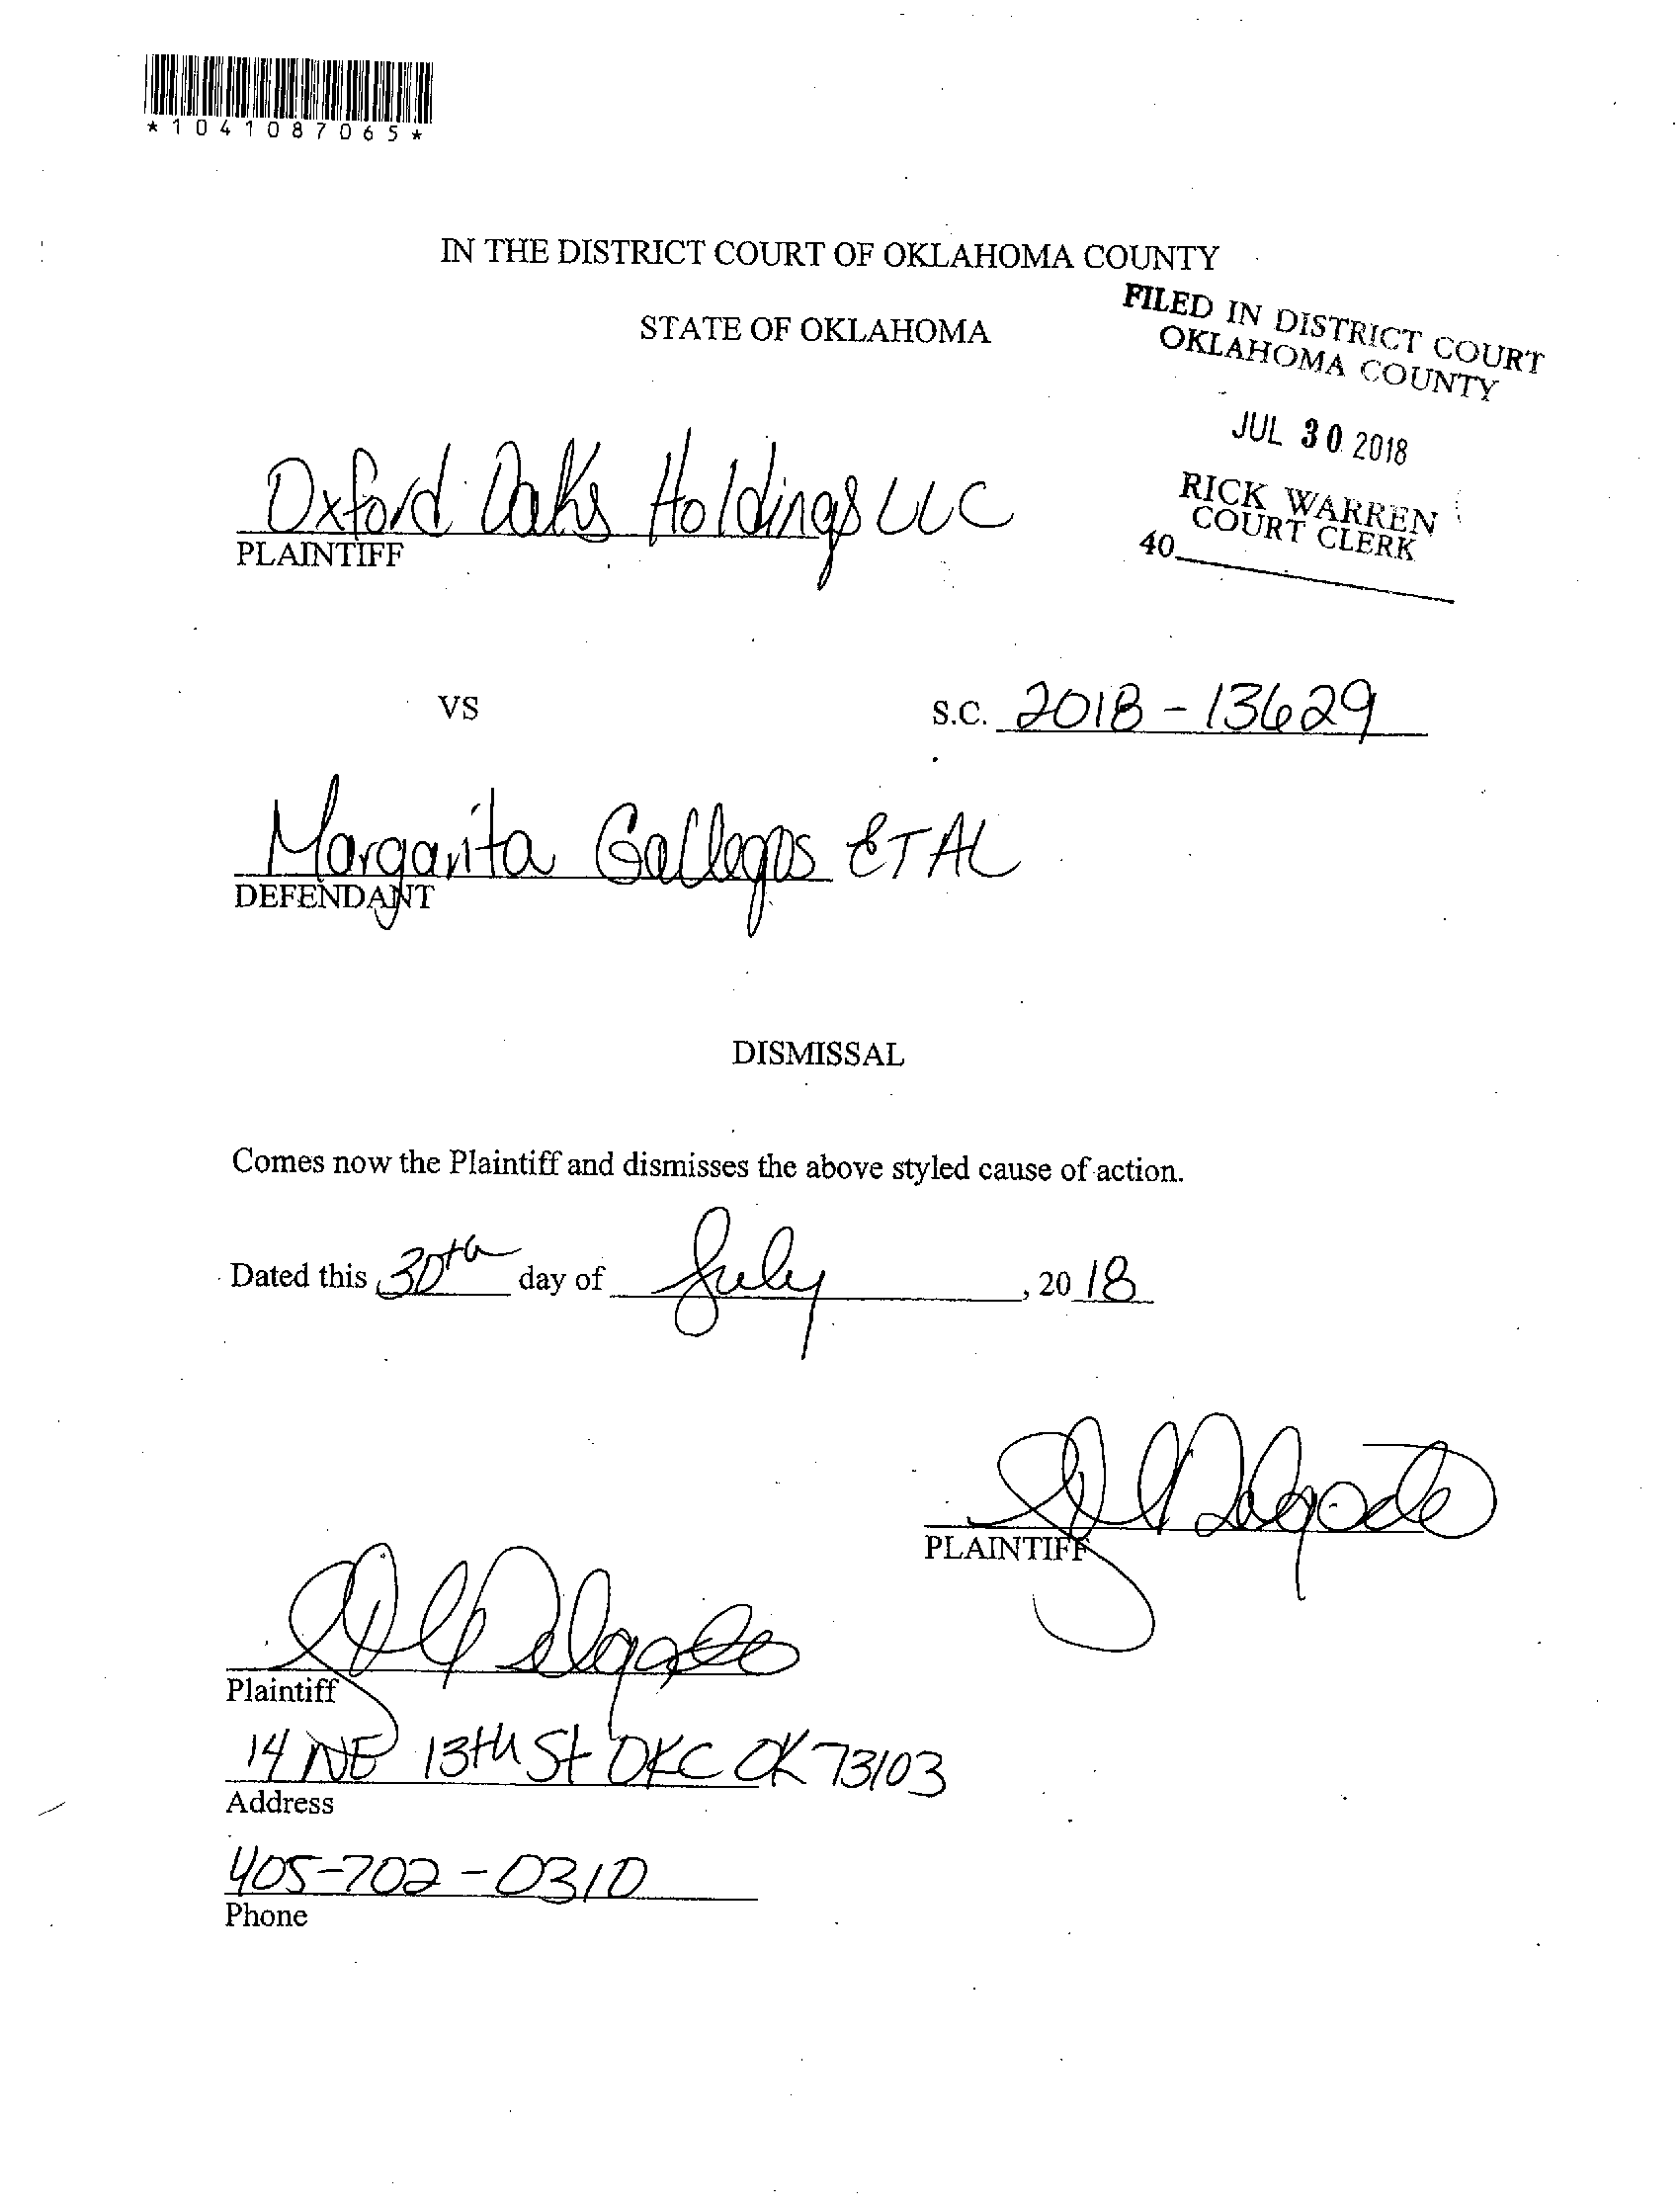 *1041087065*
IN THE DISTRICT COURT OF OKLAHOMA COUNTY
STATE OF OKLAHOMA
FILED IN DISTRICT COURT
OKLAHOMA COUNTY
JUL 30 2018
RICK WARREN
COURT CLERK
40
Oxford Oaks Holdings LLC
PLAINTIFF
VS
S.C. 2018-13629
Margarita Gallegos ET AL
DEFENDANT
DISMISSAL
Comes now the Plaintiff and dismisses the above styled cause of action.
Dated this 30th day of July, 2018
Delgado
PLAINTIFF
Delgado
Plaintiff
14 NE 13th St OKC OK 73103
Address
405-702-0310
Phone